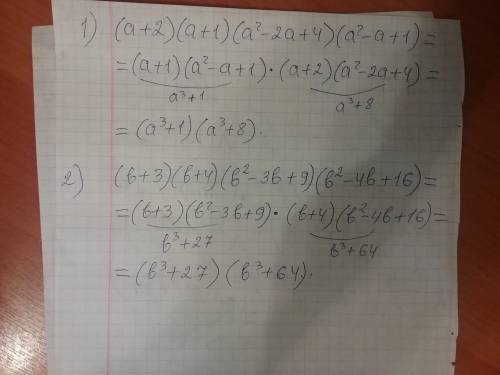 1) (a+2)(a+1)(a²-2a+4)(a²-a+1)=
=(a+1)(a²-a+1)·(a+2)(a²-2a+4)=
a³+1 a³+8
=(a³+1)(a³+8).
2) (в+3)(в+4)(в²-3в+9)(в²-4в+16)=
=(в+3)(в²-3в+9)·(в+4)(в²-4в+16)=
в³+27 в³+64
=(в³+27)(в³+64).